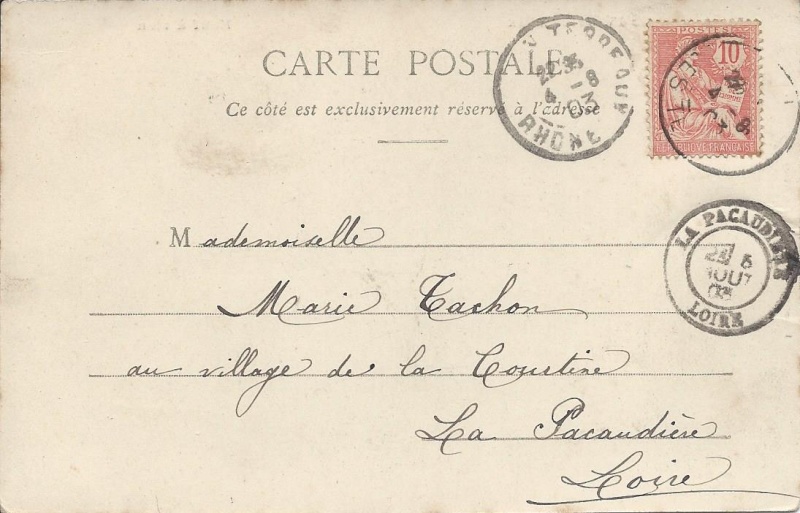 CARTE POSTALE
Ce côté est exclusivement réservé à l'adresse
POSTES
10
REPUBLIQUE FRANÇAISE
RHONE
LA PACAUDIERE
AOUT
03
LOIRE
Mademoiselle
Marie Tachon
au village de la Courtine
La Pacaudière
Loire